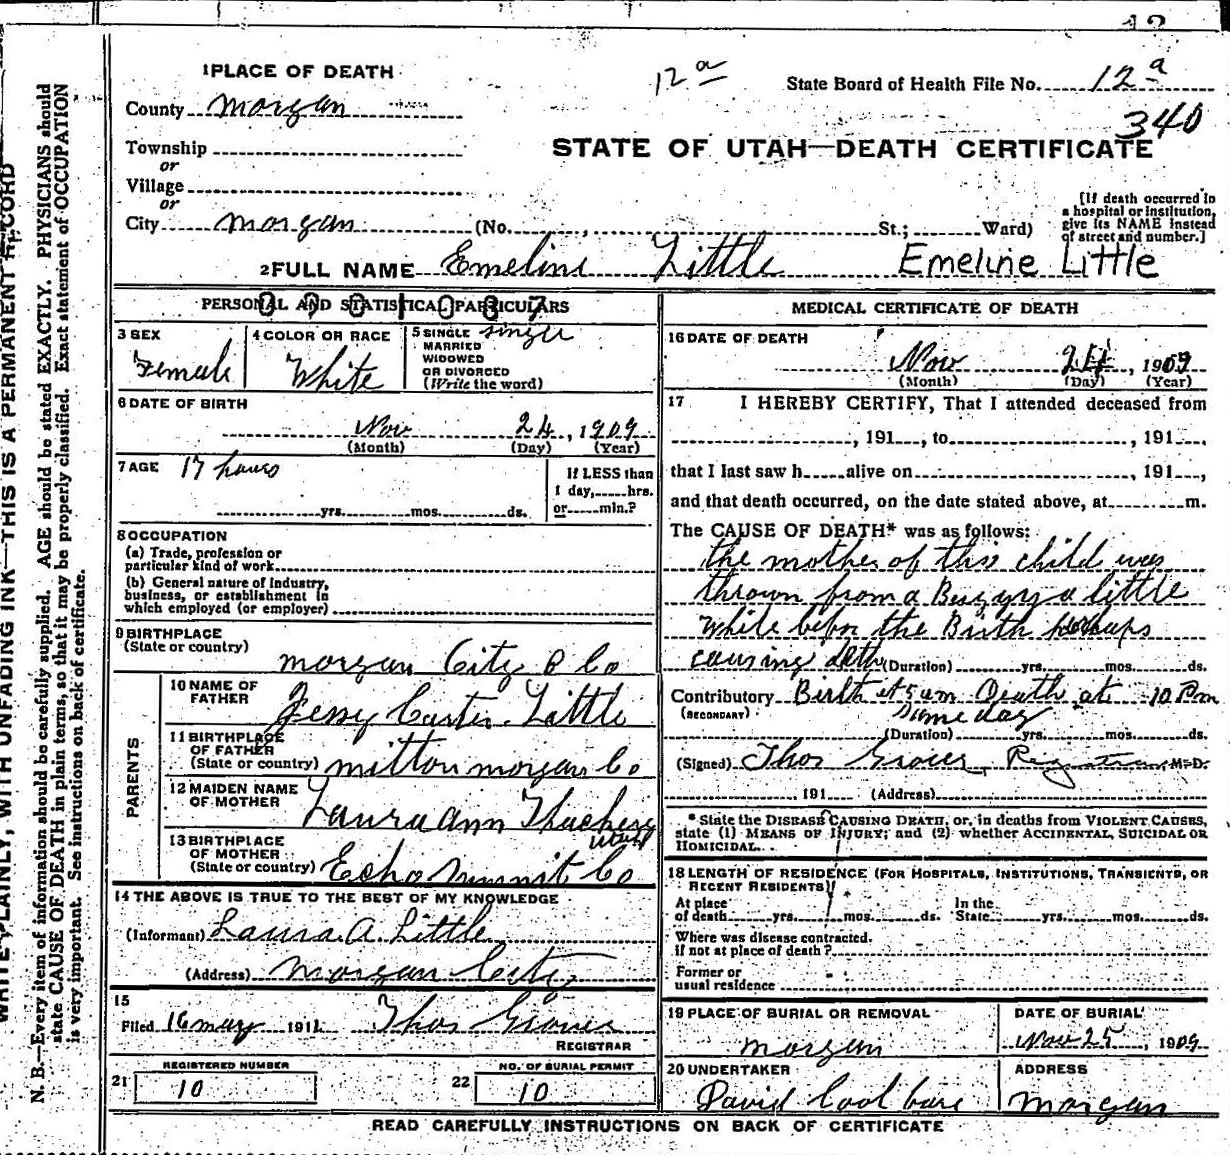 12
1 PLACE OF DEATH
12a
State Board of Health File No. 12a
County Morgan
340
Township
or
STATE OF UTAH—DEATH CERTIFICATE
Village
or
City Morgan (No. , St.; Ward)
[If death occurred in
a hospital or institution,
give its NAME instead
of street and number.]
2 FULL NAME Emeline Little Emeline Little
PERSONAL AND STATISTICAL PARTICULARS
3 SEX
Female
4 COLOR OR RACE
White
5 SINGLE
MARRIED
WIDOWED
OR DIVORCED
(Write the word)
single
6 DATE OF BIRTH
Nov 24, 1909
(Month) (Day) (Year)
7 AGE 17 hours
yrs. mos. ds.
If LESS than
1 day, hrs.
or min.?
8 OCCUPATION
(a) Trade, profession or
particular kind of work
(b) General nature of industry,
business, or establishment in
which employed (or employer)
9 BIRTHPLACE
(State or country)
Morgan City & Co
PARENTS
10 NAME OF
FATHER
Jessy Carter Little
11 BIRTHPLACE
OF FATHER
(State or country) Milton Morgan Co
12 MAIDEN NAME
OF MOTHER
Laura Ann
13 BIRTHPLACE
OF MOTHER
(State or country) Echo Summit Co
14 THE ABOVE IS TRUE TO THE BEST OF MY KNOWLEDGE
(Informant) Laura A. Little
(Address) Morgan City
15
Filed 16 may 1911 Thos Grover
REGISTRAR
REGISTERED NUMBER
21 10
NO. OF BURIAL PERMIT
22 10
MEDICAL CERTIFICATE OF DEATH
16 DATE OF DEATH
Nov 24, 1909
(Month) (Day) (Year)
17 I HEREBY CERTIFY, That I attended deceased from
, 191 , to , 191 ,
that I last saw h alive on , 191 ,
and that death occurred, on the date stated above, at m.
The CAUSE OF DEATH* was as follows:
the mother of this child was
thrown from a a little
while before the Birth perhaps
causing deth (Duration) yrs. mos. ds.
Contributory Birth at 5 am Death at 10 Pm
(SECONDARY) same day
(Duration) yrs. mos. ds.
(Signed) Thos Grover, Registrar M.D.
, 191 (Address)
* State the DISEASE CAUSING DEATH, or, in deaths from VIOLENT CAUSES,
state (1) MEANS OF INJURY; and (2) whether ACCIDENTAL, SUICIDAL OR
HOMICIDAL.
18 LENGTH OF RESIDENCE (FOR HOSPITALS, INSTITUTIONS, TRANSIENTS, OR
RECENT RESIDENTS)
At place
of death yrs. mos. ds.
In the
State yrs. mos. ds.
Where was disease contracted.
if not at place of death?
Former or
usual residence
19 PLACE OF BURIAL OR REMOVAL
Morgan
DATE OF BURIAL
Nov 25, 1909
20 UNDERTAKER
David Coolbare
ADDRESS
Morgan
READ CAREFULLY INSTRUCTIONS ON BACK OF CERTIFICATE
WRITE PLAINLY, WITH UNFADING INK—THIS IS A PERMANENT RECORD
N. B.—Every item of information should be carefully supplied. AGE should be stated EXACTLY. PHYSICIANS should
state CAUSE OF DEATH in plain terms, so that it may be properly classified. Exact statement of OCCUPATION
is very important. See instructions on back of certificate.